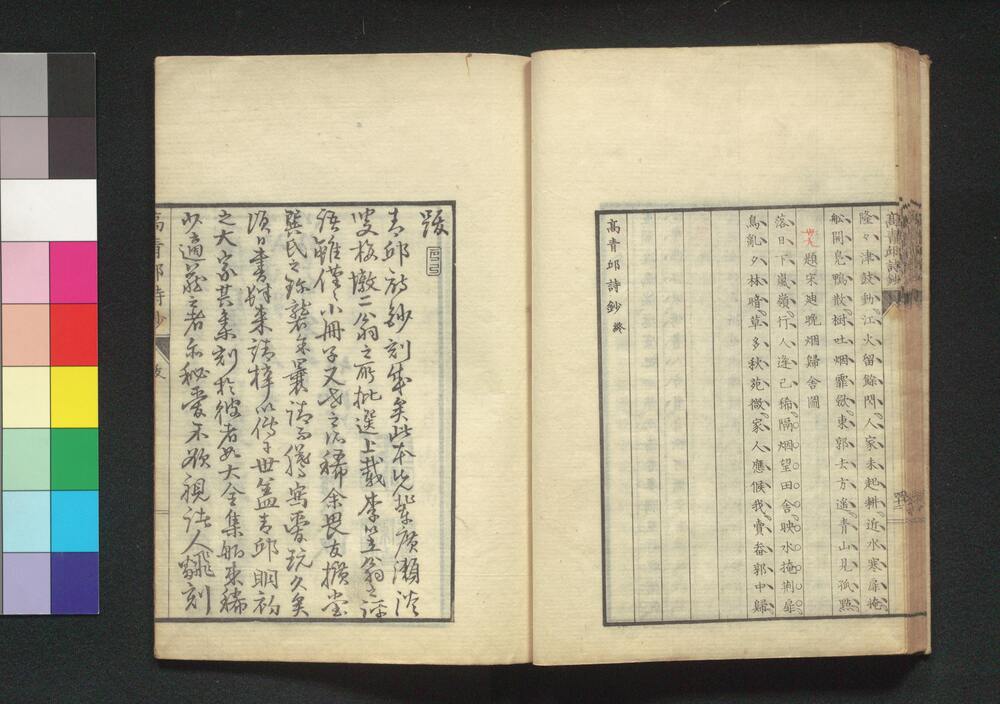 高青邱詩鈔
隆々津鼓動江火留餘閃人家未起耕近水寒扉掩
舩開鳧鴨散樹吐烟霏斂東郭去方遙青山見孤點
題宋廸晩烟歸舍圖
落日下嵐嶺行人逢已稀隔烟望田舍映水掩荆扉
鳥亂夕林暗草多秋苑微家人應候我賣畚郭中歸
高青邱詩鈔 終
跋
青邱詩鈔刻成矣此本先輩廣瀬淡
叟梅墩二翁之所批選上載李笠翁之評
語雖僅々小冊子又世之所稀余畏友擴堂
龔氏之珍襲余曩請而謄寫愛玩久矣
頃日書肆來請梓以傳于世蓋青邱明初
之大家其集刻於彼者如大全集舶來稀
少適藏之者亦秘愛不欲視諸人翻刻
高青邱詩鈔 跋